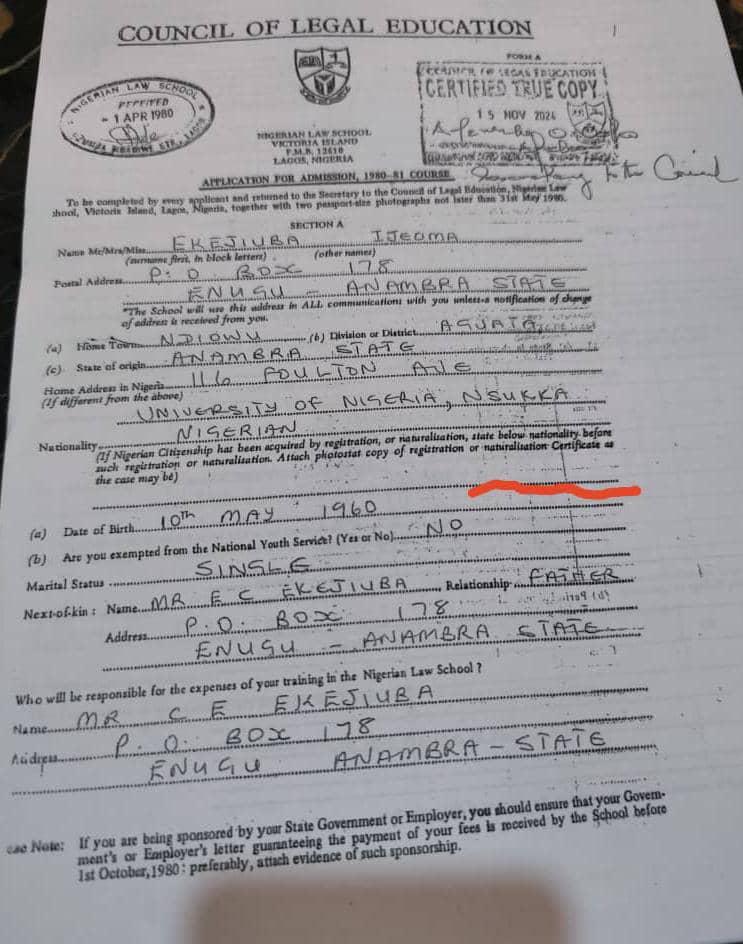 COUNCIL OF LEGAL EDUCATION
FORM A
NIGERIAN LAW SCHOOL
- 1 APR 1980
CERTIFIED TRUE COPY
15 NOV 2024
NIGERIAN LAW SCHOOL
VICTORIA ISLAND
P.M.B. 12610
LAGOS, NIGERIA
to the Council
APPLICATION FOR ADMISSION, 1980-81 COURSE
To be completed by every applicant and returned to the Secretary to the Council of Legal Education, Nigerian Law
hool, Victoria Island, Lagos, Nigeria, together with two passport-size photographs not later than 31st May 1980.
SECTION A
Name Mr/Mrs/Miss EKEJIUBA IJEOMA
(surname first, in block letters) (other names)
Postal Address P. O BOX 178
ENUGU - ANAMBRA STATE
*The School will use this address in ALL communications with you unless a notification of change
of address is received from you.
(a) Home Town NDIOWU (b) Division or District AGUATA
(c) State of origin ANAMBRA STATE
Home Address in Nigeria 116 POULTON AVE
(If different from the above)
UNIVERSITY OF NIGERIA, NSUKKA
Nationality NIGERIAN
(If Nigerian Citizenship has been acquired by registration, or naturalisation, state below nationality before
such registration or naturalisation. Attach photostat copy of registration or naturalisation Certificate as
the case may be)
(a) Date of Birth 10TH MAY 1960
(b) Are you exempted from the National Youth Service? (Yes or No) NO
Marital Status SINGLE
Next-of-kin : Name MR E C EKEJIUBA, Relationship FATHER
Address P.O. BOX 178
ENUGU - ANAMBRA STATE
Who will be responsible for the expenses of your training in the Nigerian Law School ?
Name MR C E EKEJIUBA
Address P. O. BOX 178
ENUGU ANAMBRA - STATE
ase Note: If you are being sponsored by your State Government or Employer, you should ensure that your Govern-
ment's or Employer's letter guaranteeing the payment of your fees is received by the School before
1st October, 1980 : preferably, attach evidence of such sponsorship.